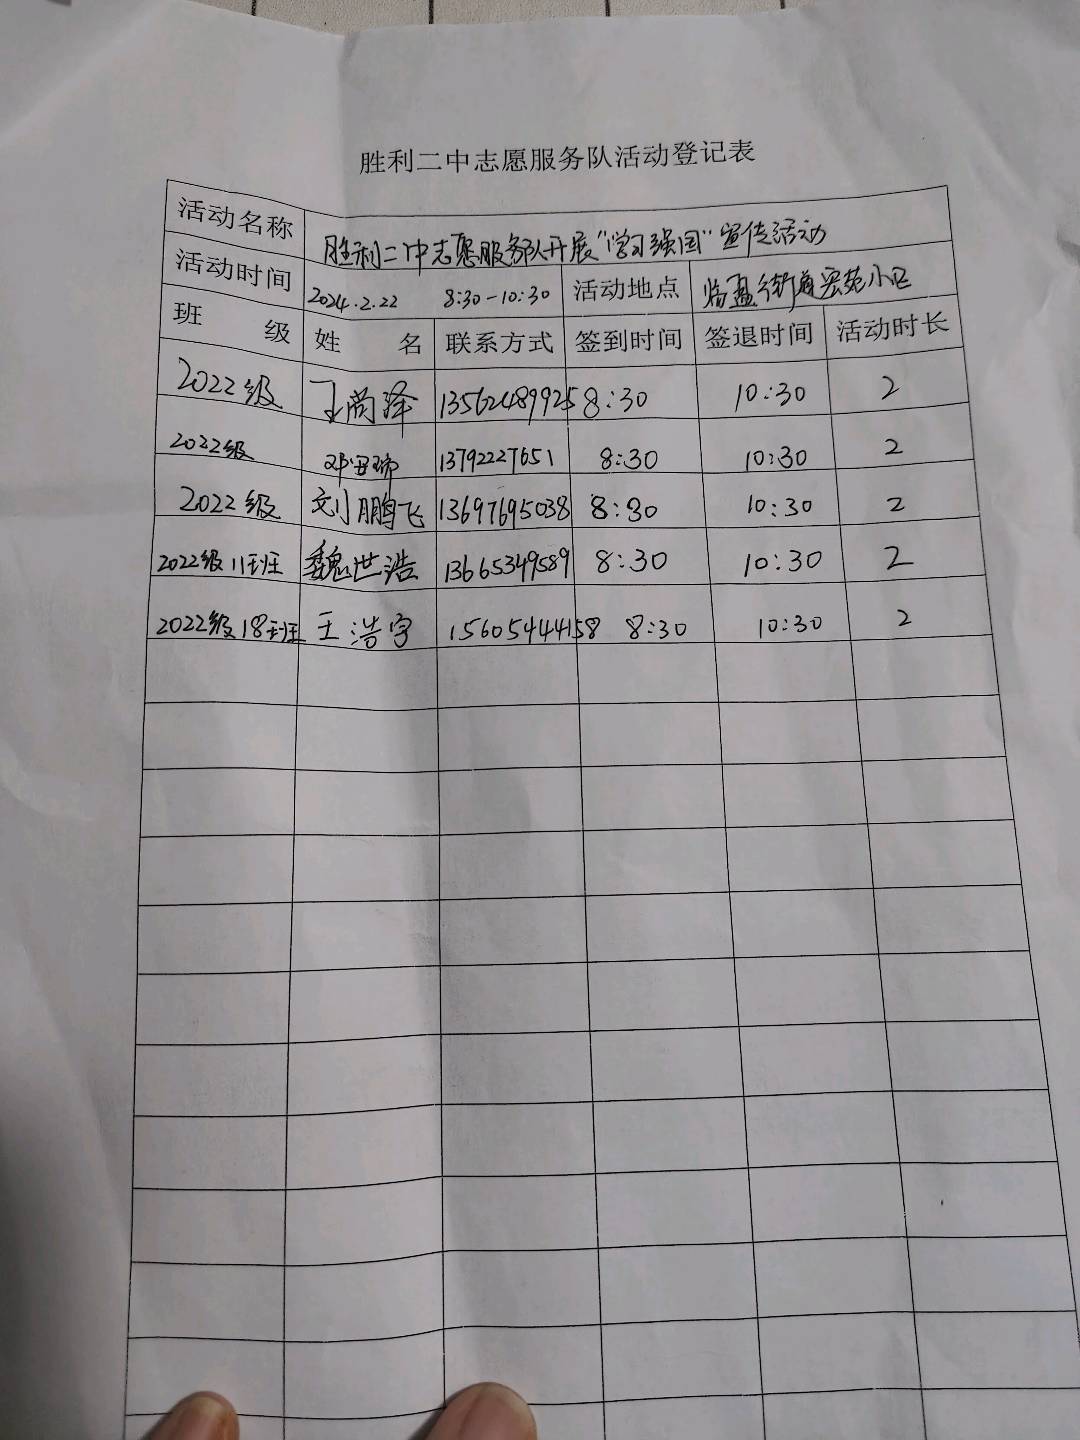 胜利二中志愿服务队活动登记表
活动名称 胜利二中志愿服务队开展“学习强国”宣传活动
活动时间 2024.2.22 8:30-10:30 活动地点 街道宏苑小区
班 级 姓 名 联系方式 签到时间 签退时间 活动时长
2022级 王尚泽 13562489925 8:30 10:30 2
2022级 邓 13792227651 8:30 10:30 2
2022级 刘鹏飞 13697695038 8:30 10:30 2
2022级11班 魏世浩 13665349589 8:30 10:30 2
2022级18班 王浩宇 15605444158 8:30 10:30 2